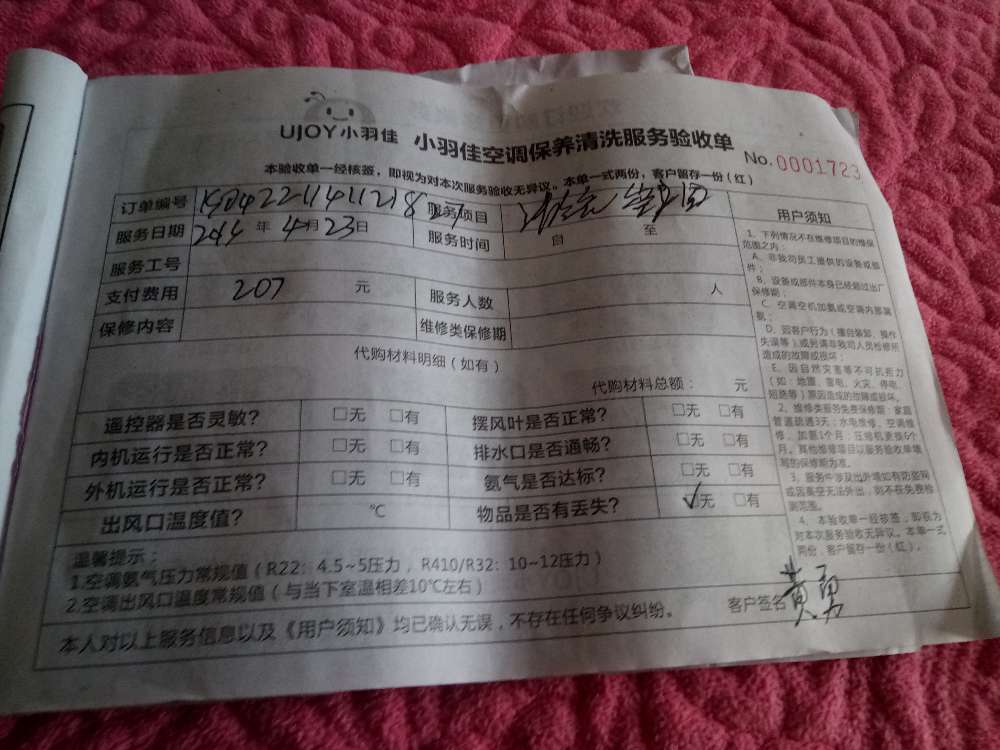 UJOY小羽佳 小羽佳空调保养清洗服务验收单
No.0001723
本验收单一经核签，即视为对本次服务验收无异议。本单一式两份，客户留存一份（红）
订单编号 服务项目
服务日期 年 4月23日 服务时间 自 至
服务工号
支付费用 207 元 服务人数 人
保修内容 维修类保修期
代购材料明细（如有）
代购材料总额： 元
遥控器是否灵敏？ □无 □有 摆风叶是否正常？ □无 □有
内机运行是否正常？ □无 □有 排水口是否通畅？ □无 □有
外机运行是否正常？ □无 □有 氨气是否达标？ □无 □有
出风口温度值？ ℃ 物品是否有丢失？ ☑无 □有
温馨提示：
1.空调氨气压力常规值（R22：4.5~5压力，R410/R32：10~12压力）
2.空调出风口温度常规值（与当下室温相差10℃左右）
本人对以上服务信息以及《用户须知》均已确认无误，不存在任何争议纠纷。
客户签名 黄勇
用户须知
1、下列情况不在维修项目的维保
范围之内：
A、非我司员工提供的设备或部
件；
B、设备或部件本身已经超过出厂
保修期；
C、空调空机加氨或空调内部漏
氨；
D、因客户行为（擅自装卸、操作
失误等）或另请非我司人员检修所
造成的故障或损坏；
E、因自然灾害等不可抗拒力
（如：地震、雷电、火灾、停电、
短路等）原因造成的故障或损坏。
2、维修类服务免费保修期：家庭
管道疏通3天；水电维修、空调维
修、加氨1个月；压缩机更换6个
月。其他维修项目以服务验收单填
写的保修期为准。
3、服务中涉及出外墙如有防盗网
或因高空无法外出，则不在免费检
测范围。
4、本验收单一经核签，即视为
对本次服务验收无异议。本单一式
两份，客户留存一份（红）。